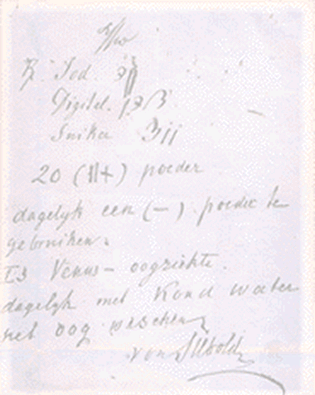 R Jod. ʒ
Digitel.
Suiker ʒij
20 (||+) poeder
dagelyk een (-) poeder te
gebruiken.
Is Venus - oogziekte.
dagelyk met Koud water
het oog wasschen
von Siebold